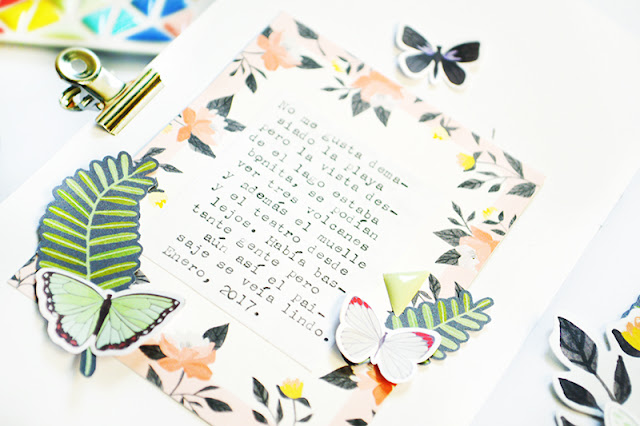 No me gusta dema-
siado la playa
pero la vista des-
de el lago estaba
bonita, se podían
ver tres volcanes
y además el muelle
y el teatro desde
lejos. Había bas-
tante gente pero
aún así el pai-
saje se veía lindo.
Enero, 2017.